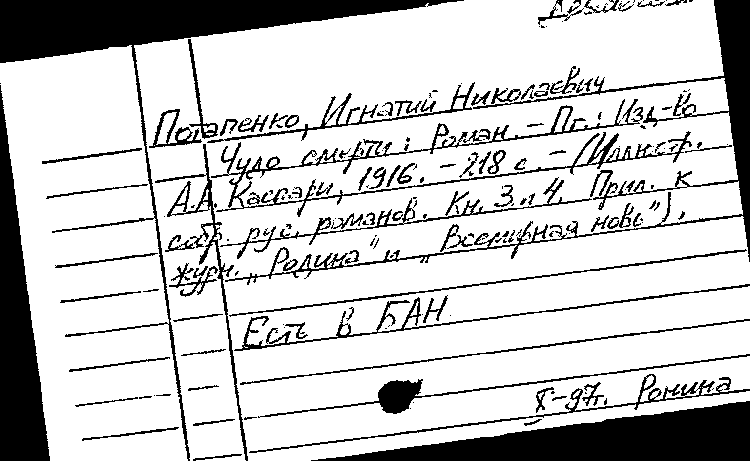 Потапенко, Игнатий Николаевич
Чудо смерти: Роман. – Пг.: Изд-во
А.А. Каспари, 1916. – 218 с. – (Иллюстр.
собр. рус. романов. Кн. 3 и 4. Прил. к
журн. „Родина" и „Всемирная новь").
Есть в БАН
X-97г. Ронина